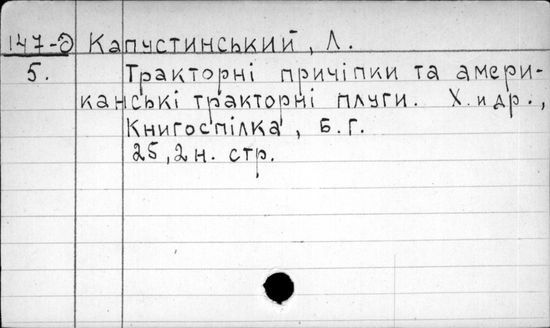 147-д Капустинський, Л.
5. Тракторні причіпки та амери-
канські тракторні плуги. Х. и др.,
Книгоспілка, Б.Г.
25, 2 н. стр.